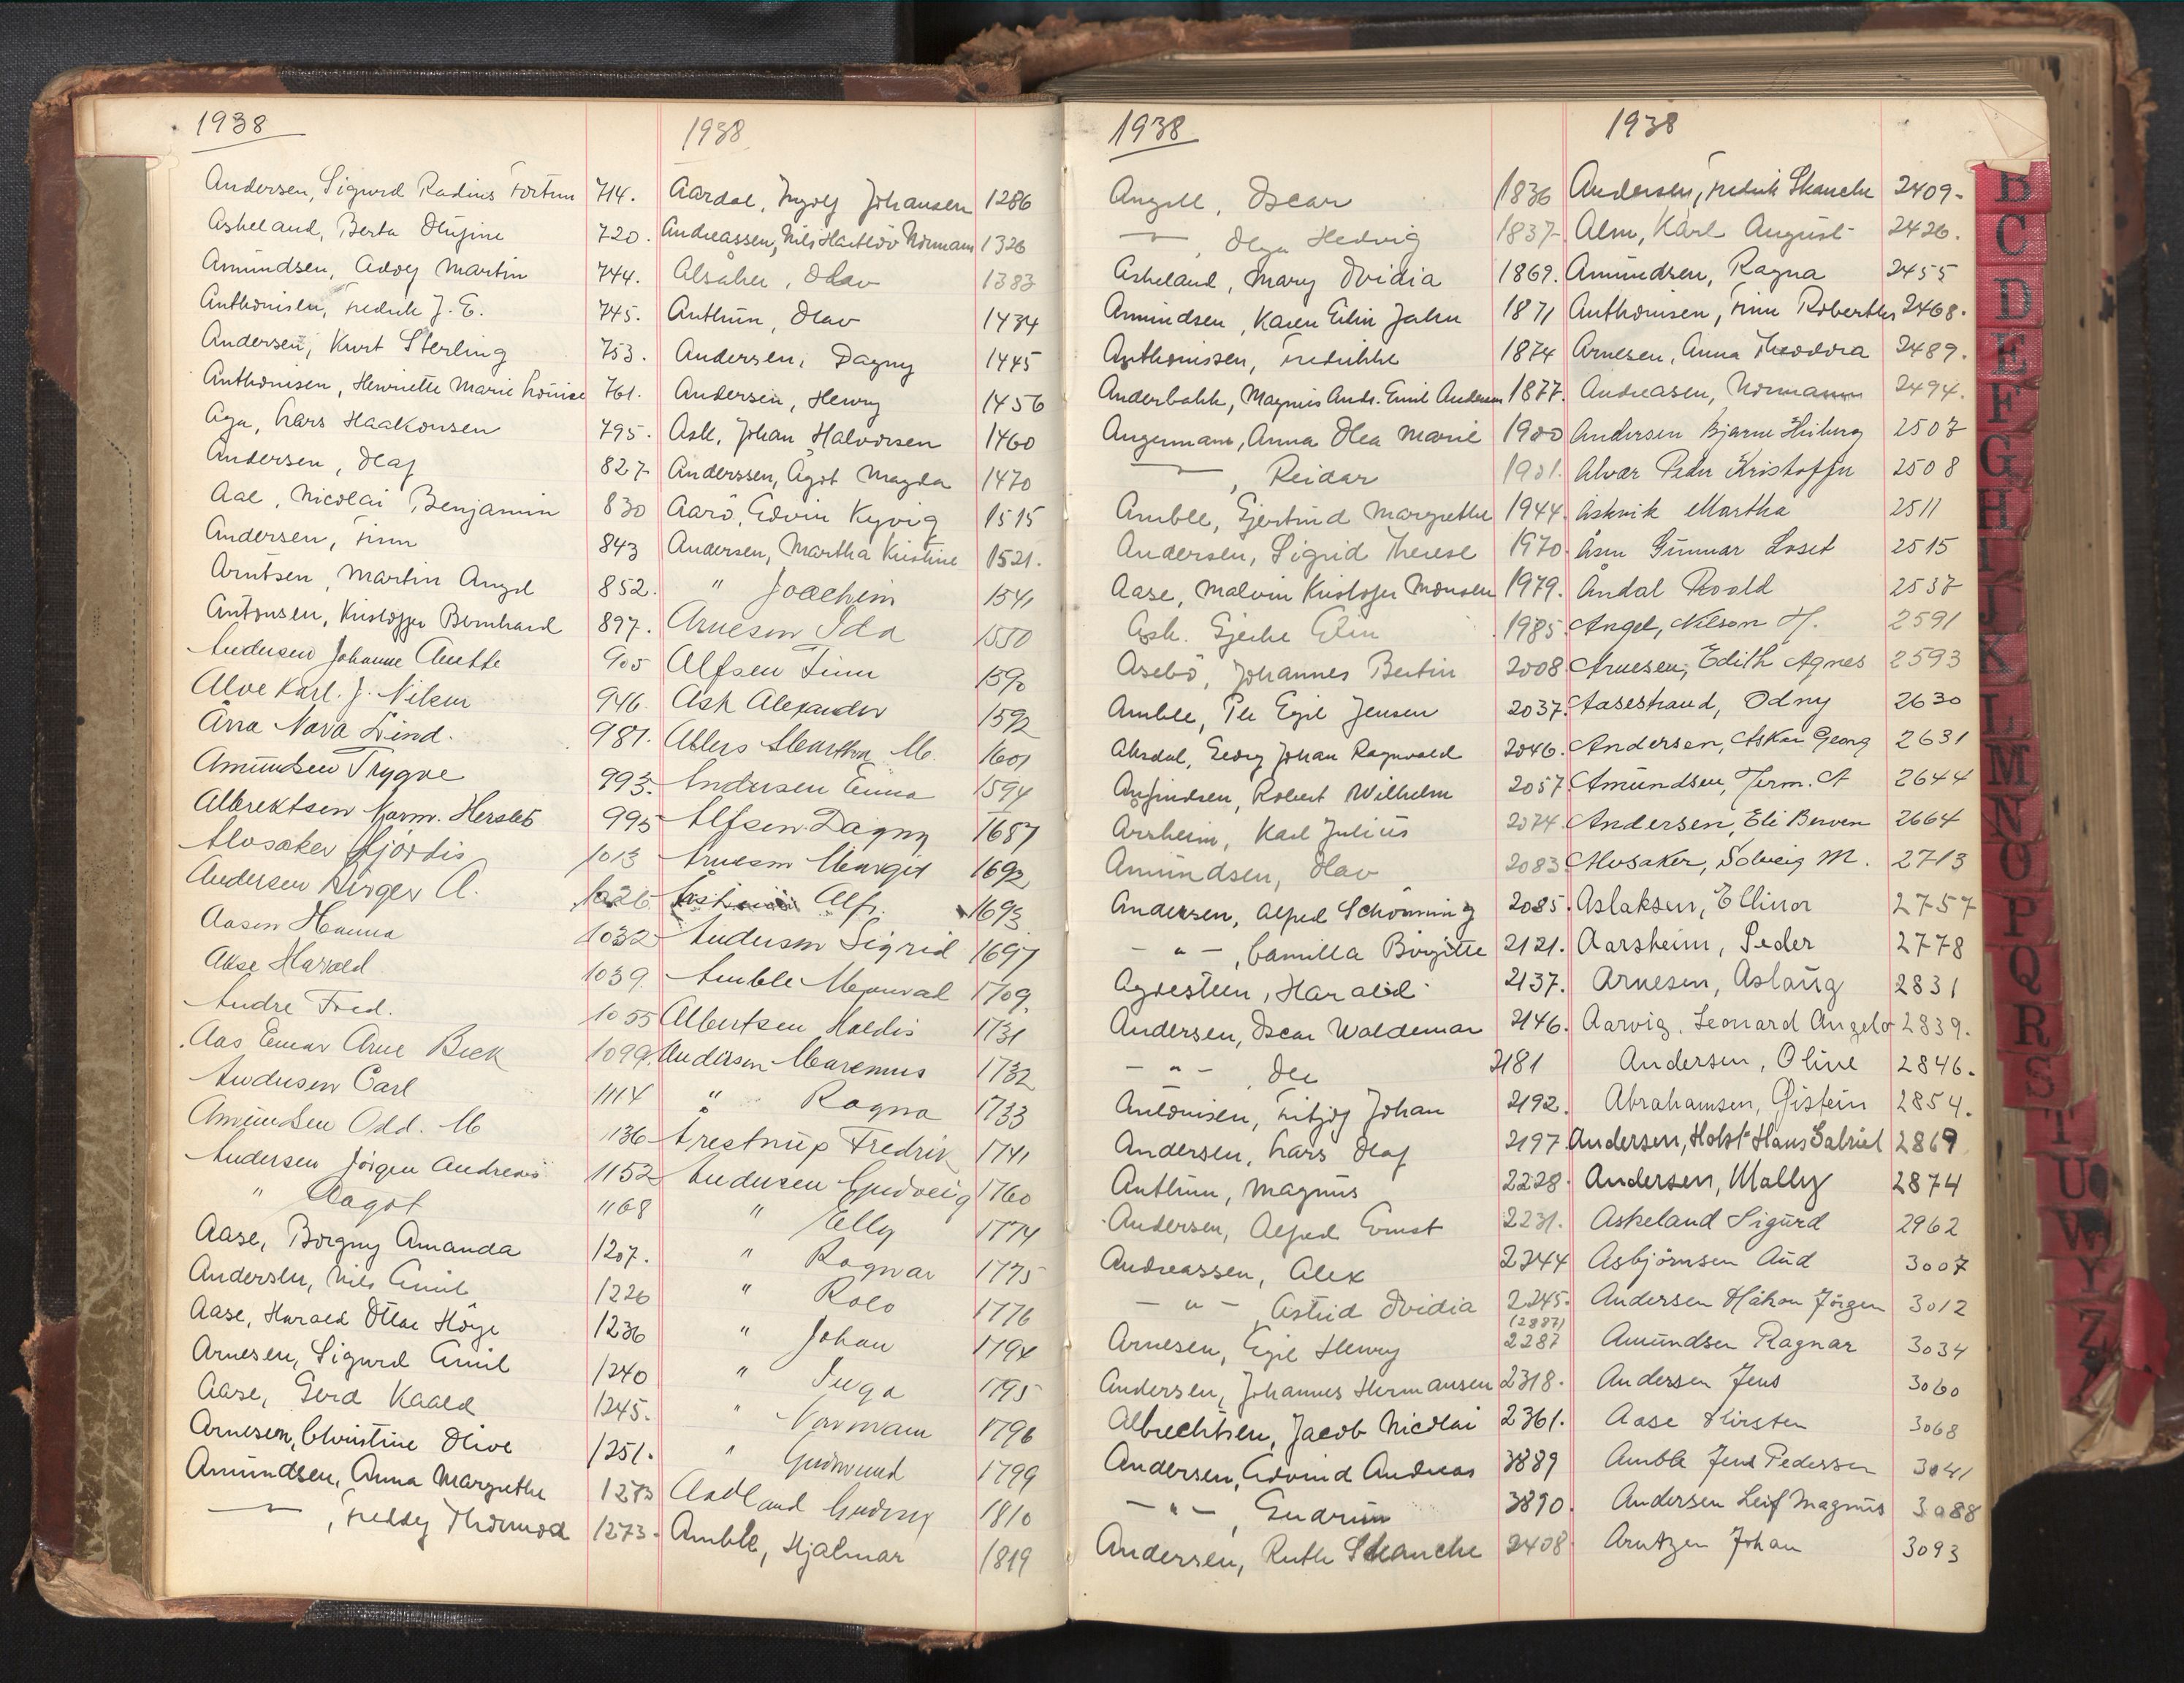 1938
Andersen, Sigurd Radius Fortun 714.
Askeland, Berta 720.
Amundsen, Adolf Martin 744.
Anthonisen, Fredrik J. E. 745.
Andersen, Kurt Sterling 753.
Anthonisen, Henriette Marie Louise 761.
Aga, Lars Haakonsen 795.
Andersen, Olaf 827
Aae, Nicolai Benjamin 830
Andersen, Finn 843
Arntsen, Martin Angel 852.
Antonsen, Kristoffer Bernhard 897.
Andersen Johanne Anette 905
Alve Karl. J. Nilsen 946.
Årra Nora Lind. 981.
Amundsen Trygve 993.
Albrektsen Norm. Hersleb 995
Alvsaker Hjørdis 1013
Andersen Birger A. 1026
Aasen Hanna 1032
Aase Harald 1039
Andre Fred. 1055
Aas Einar Arne Beck 1099.
Andersen Carl 1114
Amundsen Odd. M 1136
Andersen Jörgen Andreas 1152
" Aagot 1168
Aase, Borgny Amanda 1207.
Andersen, Nils Emil 1226
Aase, Harald Ottar Höge 1236
Arnesen, Sigurd Emil 1240
Aase, Gerd Kaald 1245.
Arnesen, Christine Olive 1251.
Amundsen, Anna Margrethe 1273
— " — , Freddy Thormod 1273.
1938
Aardal, Ingolf Johansen 1286
Andreassen, Nils Hartlöv Normann 1326
Alsaker, Olav 1383
Anthun, Olav 1434
Andersen, Dagny 1445
Andersen, Henry 1456
Ask, Johan Halvorsen 1460
Anderssen, Agot Magda 1470
Aarö, Edvin Kyvig 1515
Andersen, Martha Kristine 1521.
" Joachim 1541
Arnesen Ida 1550
Alfsen Finn 1590
Ask Alexander 1592
Ahlers Martha M. 1601
Andersen Erna 1594
Alfsen Dagny 1687
Arnesen Margit 1692
Alf. 1693
Andersen Sigrid 1697
Amble Manval 1709.
Albertsen Haldis 1731
Andersen Marenus 1732
" Ragna 1733
Årestrup Fredrik 1741
Andersen Gudveig 1760
" Elly 1774
" Ragnar 1775
" Rolo 1776
" Johan 1794
" Inga 1795
" Normann 1796
" Gudmund 1799
Aadland Gudrun 1810
Amble, Hjalmar 1819
1938
Angell, Oscar 1836
— " — , Olga Hedvig 1837
Askeland, Mary Ovidia 1869.
Amundsen, Karen Elin Jahn 1871
Anthonissen, Fredrikke 1874
Anderbakk, Magnus Andr. Emil Andersen 1877.
Angermann, Anna Olea Marie 1900
— " — , Reidar 1901.
Amble, Gjertrud Margrethe 1944.
Andersen, Sigrid Therese 1970
Aase, Malvin Kristoffer Monsen 1979.
Ask. Gjerke Elin 1985
Asebö, Johannes Bertin 2008
Amble, Per Egil Jensen 2037.
Aksdal, Georg Johan Ragnvald 2046.
Anfindsen, Robert Wilhelm 2057
Arsheim, Karl Julius 2074
Amundsen, Olav 2083
Andersen, Alfred Schönning 2085.
— " — , Camilla Birgitte 2121.
Agdestein, Harald 2137.
Andersen, Oscar Waldemar 2146.
— " — , Ole 2181
Antonisen, Fritjof Johan 2192.
Andersen, Lars Olaf 2197
Anthun, Magnus 2228.
Andersen, Alfred Ernst 2231.
Andreassen, Alex 2244
— " — , Astrid Ovidia 2245.
(2887)
Arnesen, Egil Henry 2287
Andersen, Johannes Hermansen 2318.
Albrechtsen, Jacob Nicolai 2361.
Andersen, Edvind Andreas 3889
— " — , Gudrun 3890.
Andersen, Ruth Skanche 2408
1938
Andersen, Fredrik Skanche 2409-
Alm, Karl August 2426.
Amundsen, Ragna 2455
Anthonisen, Finn Roberthus 2468.
Arnesen, Anna Theodora 2489.
Andreasen, Normann 2494.
Andersen Bjarne Heiberg 2507
Alvær Peder Kristoffer 2508
Askvik Martha 2511
Åsen Gunnar Loset 2515
Åndal Roald 2537
Angel, Nilson H. 2591
Arnesen, Edith Agnes 2593
Aasestrand, Odny 2630
Andersen, Askar Georg 2631
Amundsen, Herm. A 2644
Andersen, Eli Berven 2664
Alvsaker, Solveig M. 2713
Aslaksen, Ellinor 2757
Aarsheim, Peder 2778
Arnesen, Aslaug 2831
Aarvig, Leonard Angelo 2839.
Andersen, Oline 2846.
Abrahamsen, Øistein 2854.
Andersen, Holst Hans Gabriel 2869
Andersen, Mally 2874
Askeland Sigurd 2962
Asbjörnsen Aud 3007
Andersen Håkon Jörgen 3012
Amundsen Ragnar 3034
Andersen Jens 3060
Aase Kirsten 3068
Amble Jens Pedersen 3041
Andersen Leif Magnus 3088
Arntzen Johan 3093
B
C
D
E
F
G
H
I
J
K
L
M
N
O
P
Q
R
S
T
U
W
Y
Z